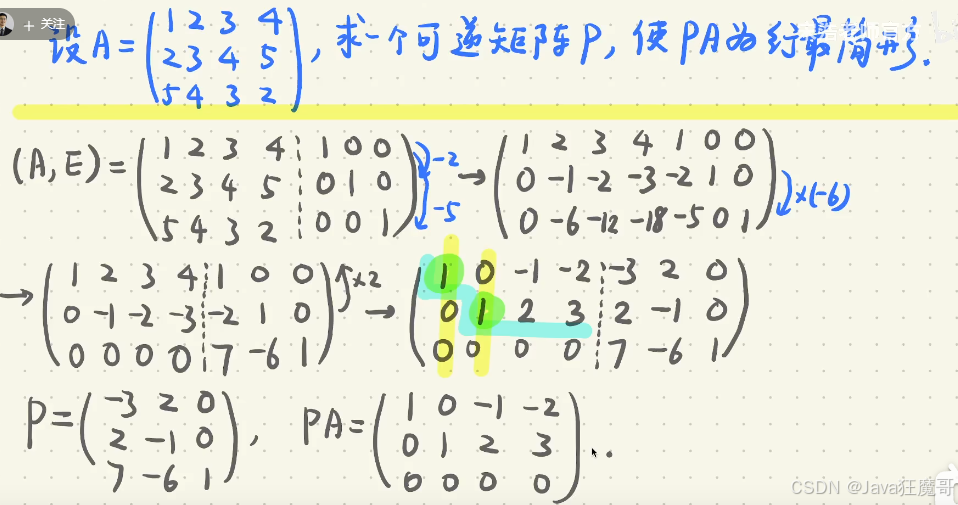 + 关注
设A=(1 2 3 4
2 3 4 5
5 4 3 2), 求一个可逆矩阵P, 使PA为行最简形.
(A,E)=(1 2 3 4 1 0 0
2 3 4 5 0 1 0
5 4 3 2 0 0 1) -2 -5 →(1 2 3 4 1 0 0
0 -1 -2 -3 -2 1 0
0 -6 -12 -18 -5 0 1) ×(-6)
→(1 2 3 4 1 0 0
0 -1 -2 -3 -2 1 0
0 0 0 0 7 -6 1) ×2 →(1 0 -1 -2 -3 2 0
0 1 2 3 2 -1 0
0 0 0 0 7 -6 1)
P=(-3 2 0
2 -1 0
7 -6 1), PA=(1 0 -1 -2
0 1 2 3
0 0 0 0).
CSDN @Java狂魔哥